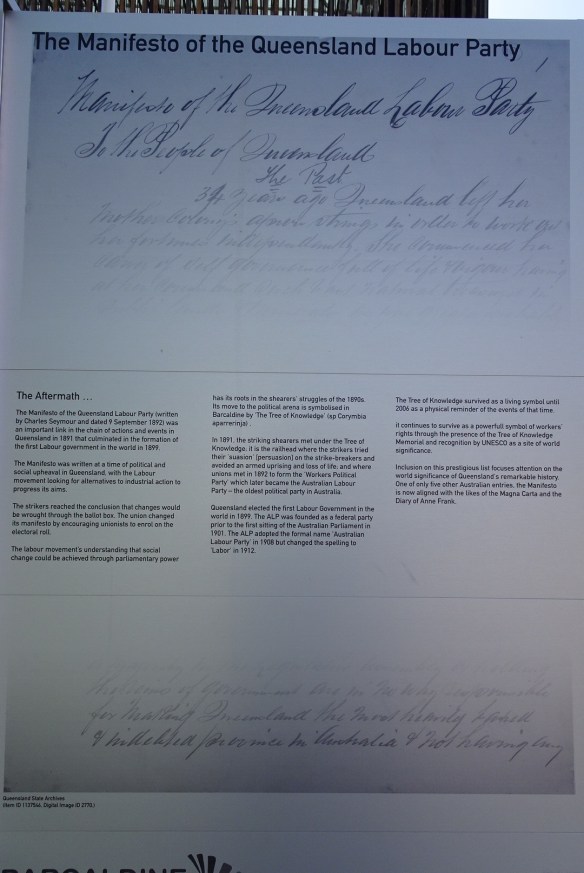 The Manifesto of the Queensland Labour Party
Manifesto of the Queensland Labour Party
To the People of Queensland
The Past
34 years ago Queensland left her
The Aftermath ...
The Manifesto of the Queensland Labour Party (written
by Charles Seymour and dated 9 September 1892) was
an important link in the chain of actions and events in
Queensland in 1891 that culminated in the formation of
the first Labour government in the world in 1899.
The Manifesto was written at a time of political and
social upheaval in Queensland, with the Labour
movement looking for alternatives to industrial action to
progress its aims.
The strikers reached the conclusion that changes would
be wrought through the ballot box. The union changed
its manifesto by encouraging unionists to enrol on the
electoral roll.
The labour movement's understanding that social
change could be achieved through parliamentary power
has its roots in the shearers' struggles of the 1890s.
Its move to the political arena is symbolised in
Barcaldine by 'The Tree of Knowledge' (sp Corymbia
aparrerinja) .
In 1891, the striking shearers met under the Tree of
Knowledge. it is the railhead where the strikers tried
their 'suasion' (persuasion) on the strike-breakers and
avoided an armed uprising and loss of life; and where
unions met in 1892 to form the 'Workers Political
Party' which later became the Australian Labour
Party – the oldest political party in Australia.
Queensland elected the first Labour Government in the
world in 1899. The ALP was founded as a federal party
prior to the first sitting of the Australian Parliament in
1901. The ALP adopted the formal name 'Australian
Labour Party' in 1908 but changed the spelling to
'Labor' in 1912.
The Tree of Knowledge survived as a living symbol until
2006 as a physical reminder of the events of that time.
it continues to survive as a powerfull symbol of workers'
rights through the presence of the Tree of Knowledge
Memorial and recognition by UNESCO as a site of world
significance.
Inclusion on this prestigious list focuses attention on the
world significance of Queensland's remarkable history.
One of only five other Australian entries, the Manifesto
is now aligned with the likes of the Magna Carta and the
Diary of Anne Frank.
for making Queensland the most heavily taxed
& indebted province in Australia & not having any
Queensland State Archives
BARCALDINE